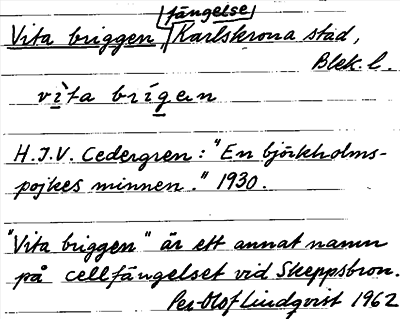 fängelse
Vita briggen / Karlskrona stad,
Blek. l.
vìta brígen
H.J.V. Cedergren: "En björkholms-
pojkes minnen." 1930.
"Vita briggen" är ett annat namn
på cellfängelset vid Skeppsbron.
Per-Olof Lindqvist 1962